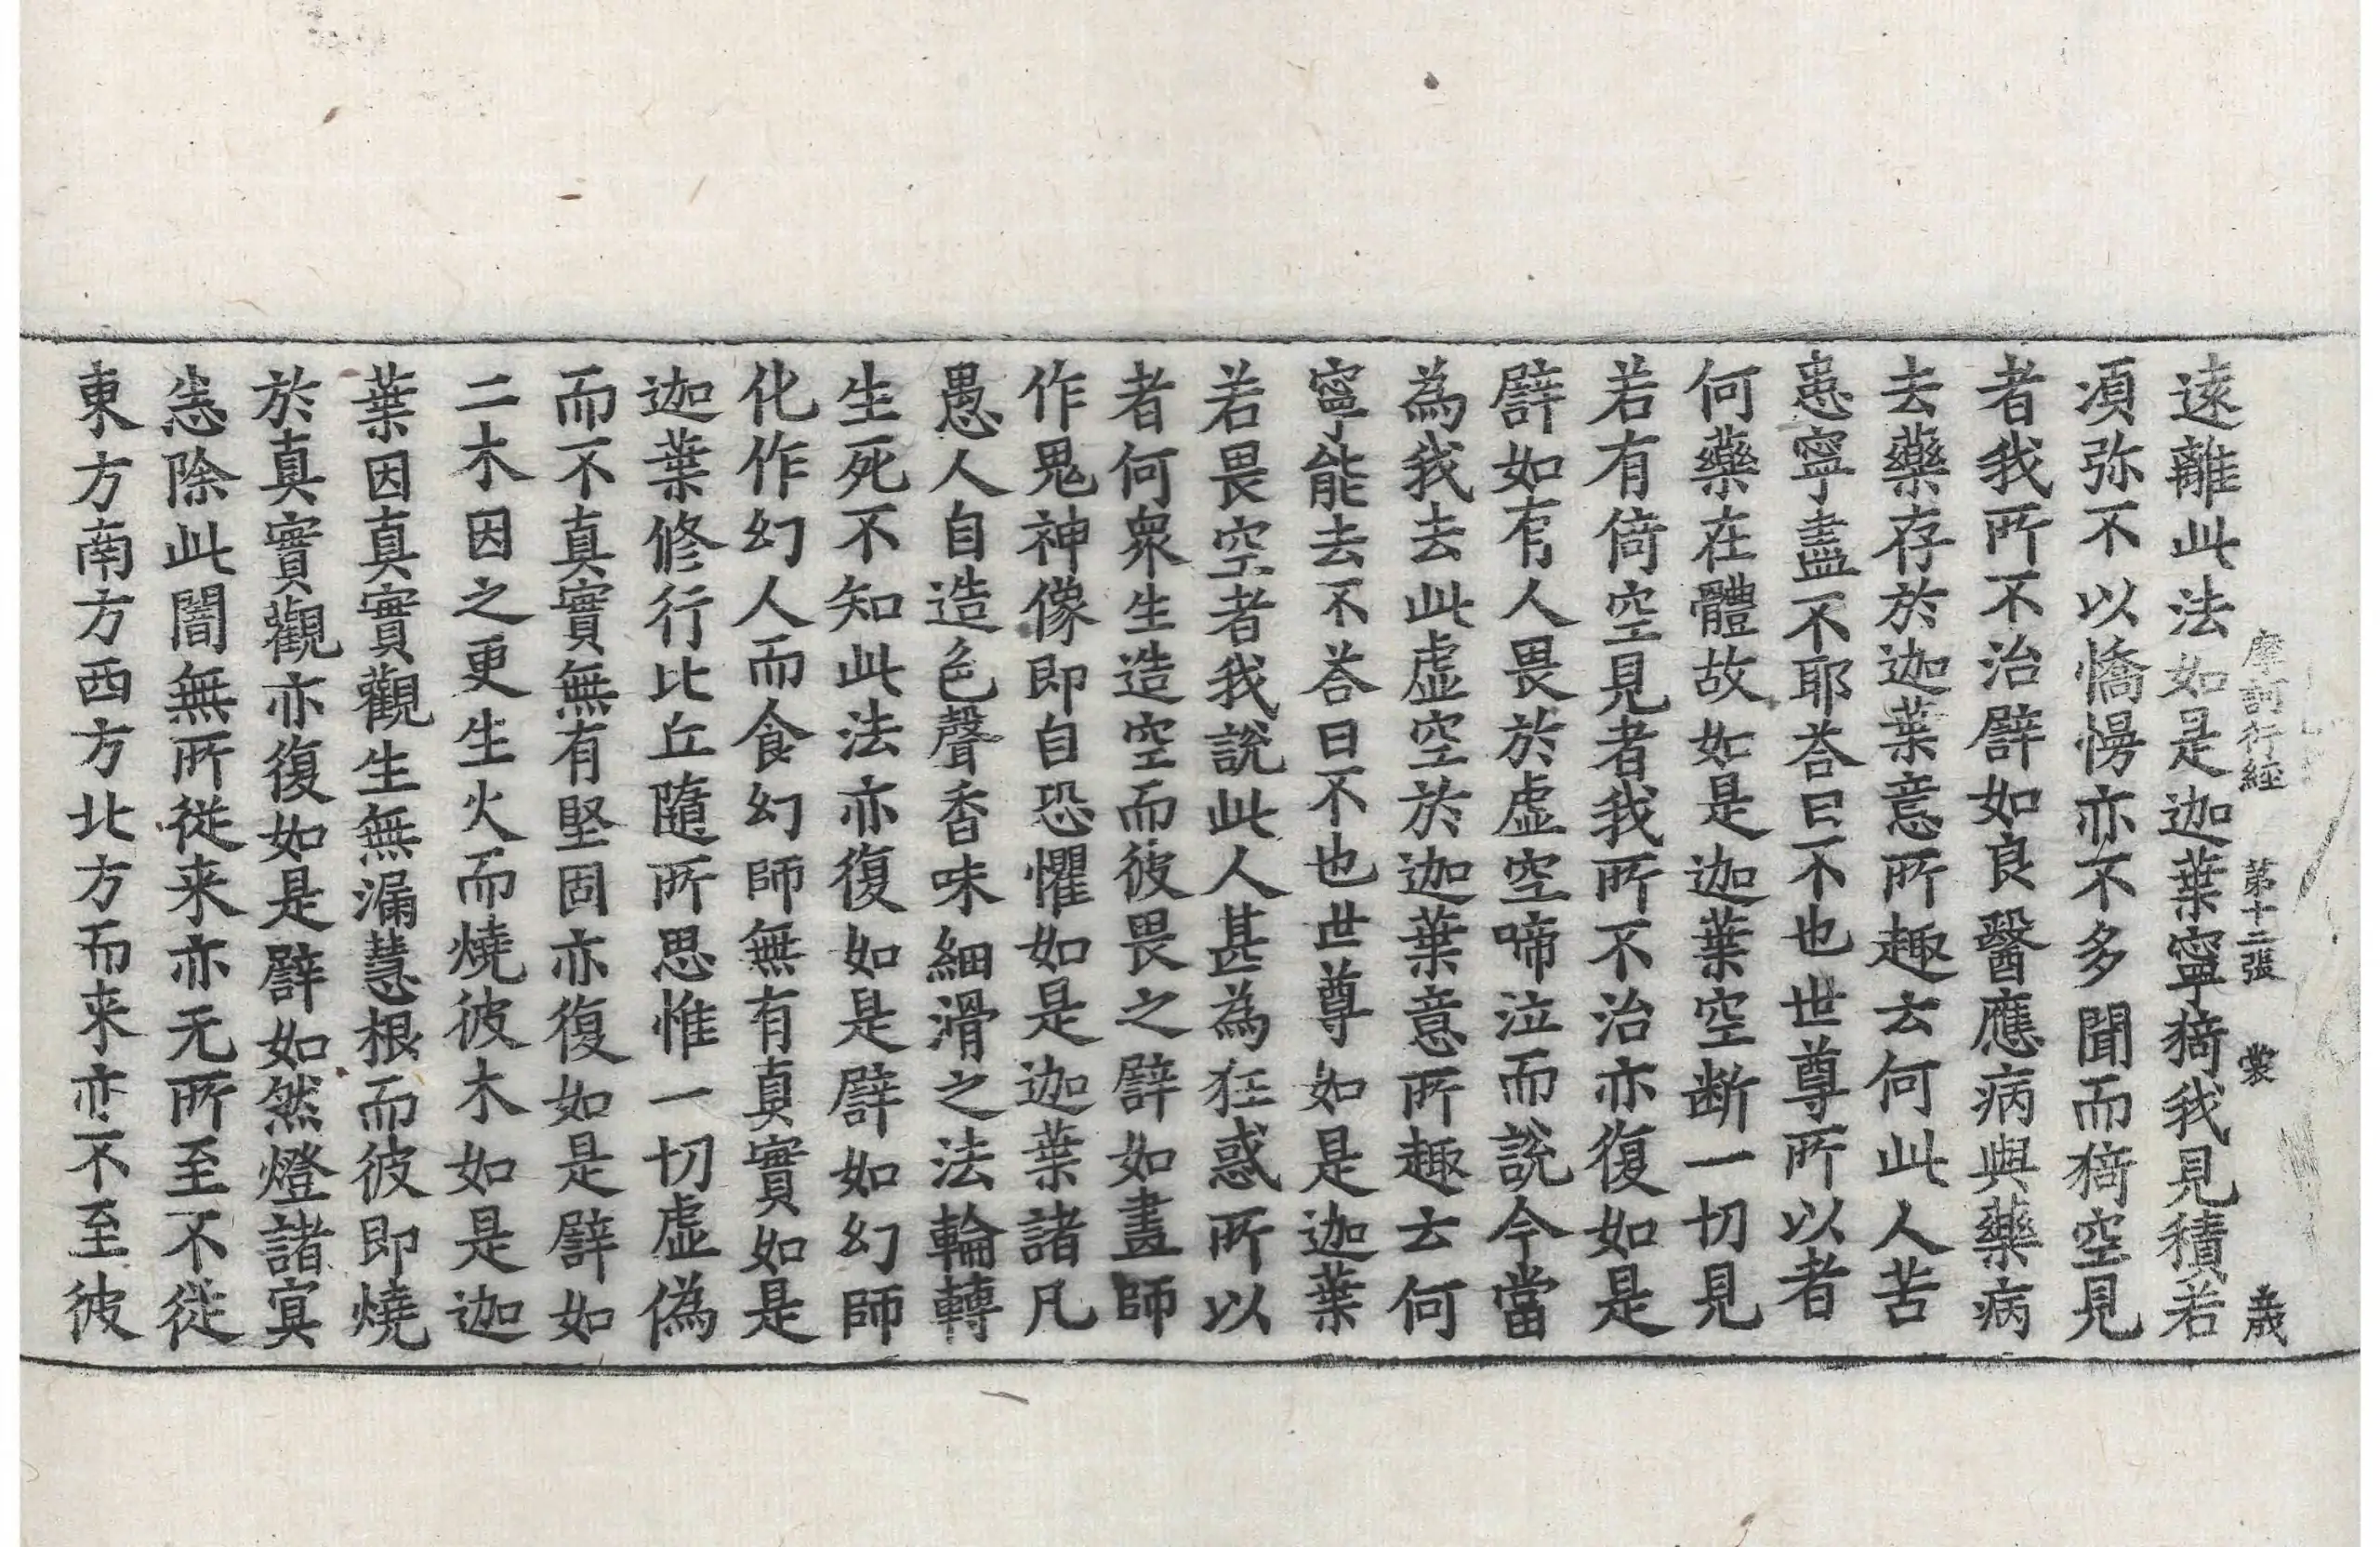 摩訶行經 第十二張 裳 歲
遠離此法如是迦葉寧猗我見積若
須弥不以憍慢亦不多聞而猗空見
者我所不治譬如良醫應病與藥病
去藥存於迦葉意所趣云何此人苦
患寧盡不耶荅曰不也世尊所以者
何藥在體故如是迦葉空断一切見
若有倚空見者我所不治亦復如是
譬如有人畏於虚空啼泣而說今當
為我去此虚空於迦葉意所趣云何
寧能去不荅曰不也世尊如是迦葉
若畏空者我說此人甚為狂惑所以
者何衆生造空而彼畏之譬如畫師
作鬼神像即自恐懼如是迦葉諸凡
愚人自造色聲香味細滑之法輪轉
生死不知此法亦復如是譬如幻師
化作幻人而食幻師無有真實如是
迦葉修行比丘隨所思惟一切虚偽
而不真實無有堅固亦復如是譬如
二木因之更生火而燒彼木如是迦
葉因真實觀生無漏慧根而彼即燒
於真實觀亦復如是譬如然燈諸冥
悉除此闇無所從来亦无所至不從
東方南方西方北方而来亦不至彼